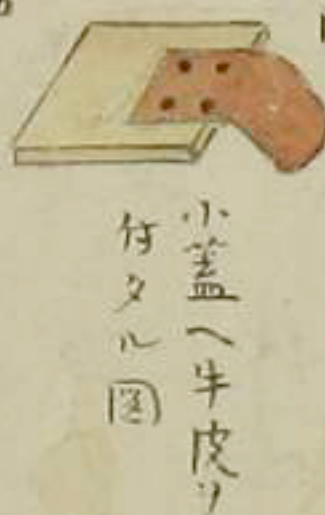 小蓋へ牛皮ヲ
付タル圖